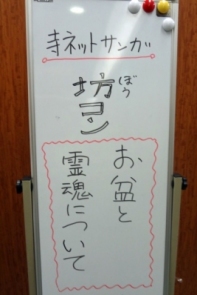 寺ネットサンガ
坊コン
ぼう
お盆と
霊魂について